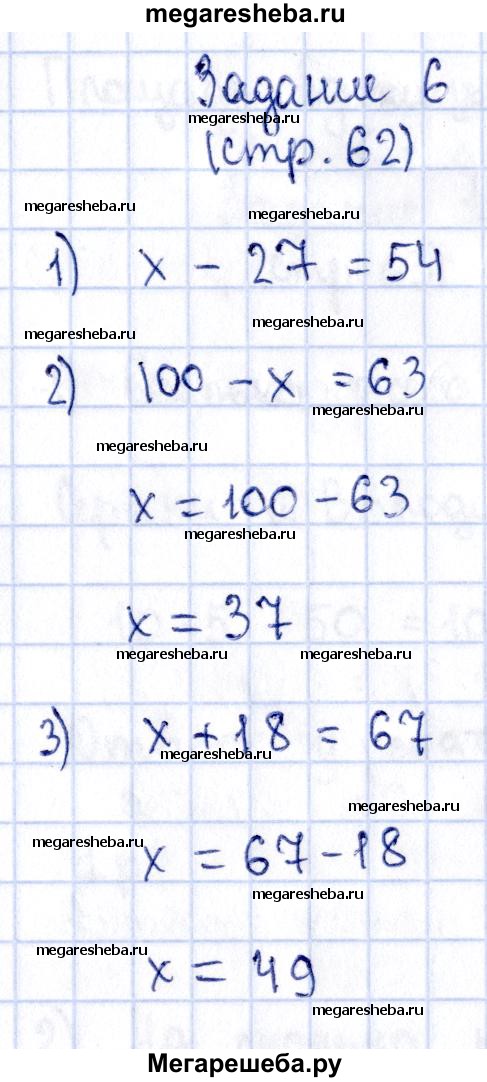 megaresheba.ru
Задание 6
(стр. 62)
megaresheba.ru
megaresheba.ru
1) x - 27 = 54
megaresheba.ru
megaresheba.ru
2) 100 - x = 63
megaresheba.ru
megaresheba.ru
x = 100 - 63
megaresheba.ru
x = 37
megaresheba.ru megaresheba.ru
3) x + 18 = 67
megaresheba.ru
megaresheba.ru
megaresheba.ru
x = 67 - 18
megaresheba.ru
megaresheba.ru
x = 49
megaresheba.ru
Мегарешеба.ру